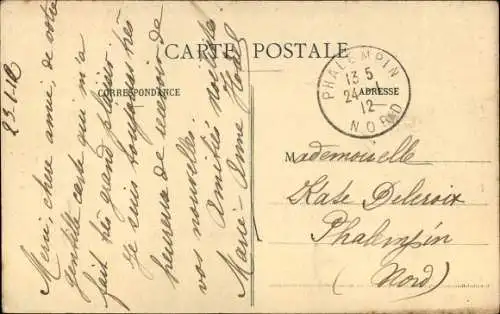 CARTE POSTALE
CORRESPONDANCE
ADRESSE
PHALEMPIN
13 5
24 - 1
12
NORD
23.1.12
Merci, chère amie, de votre
gentille carte qui m'a
fait très grand plaisir.
Je suis toujours très
heureuse de recevoir de
vos nouvelles.
Amitiés
Marie-Anne
Mademoiselle
Kate Delcroix
Phalempin
(Nord)